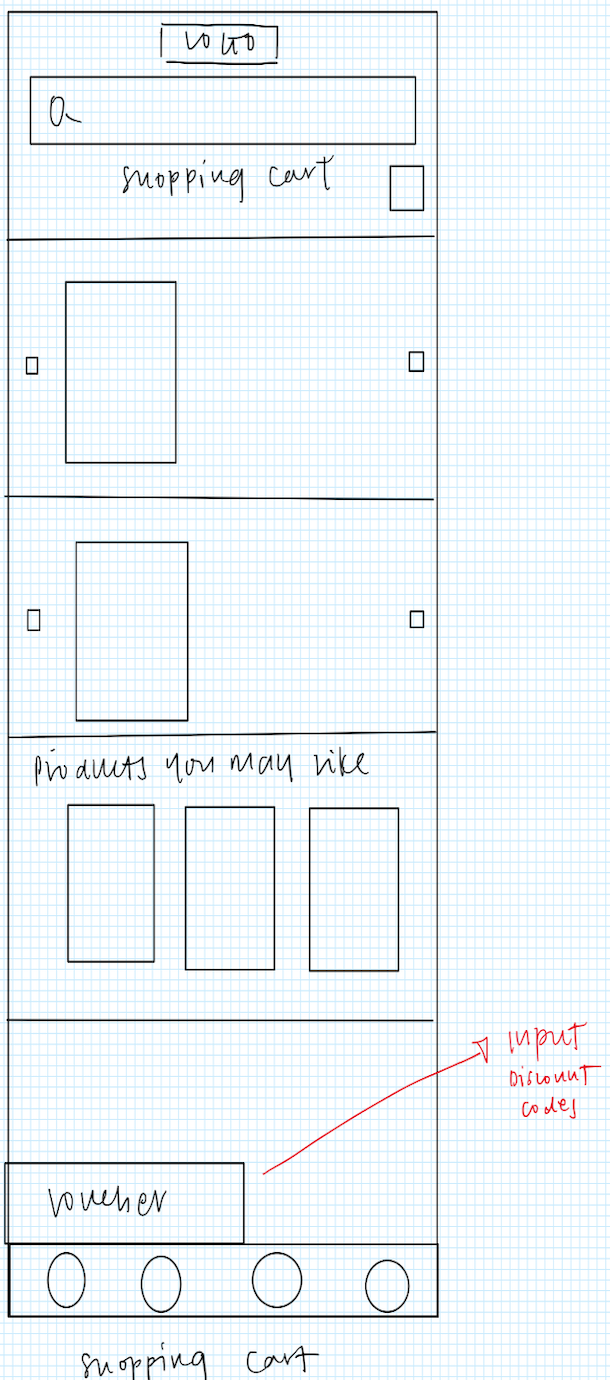 LOGO
shopping cart
products you may like
input
Discount
codes
voucher
shopping cart